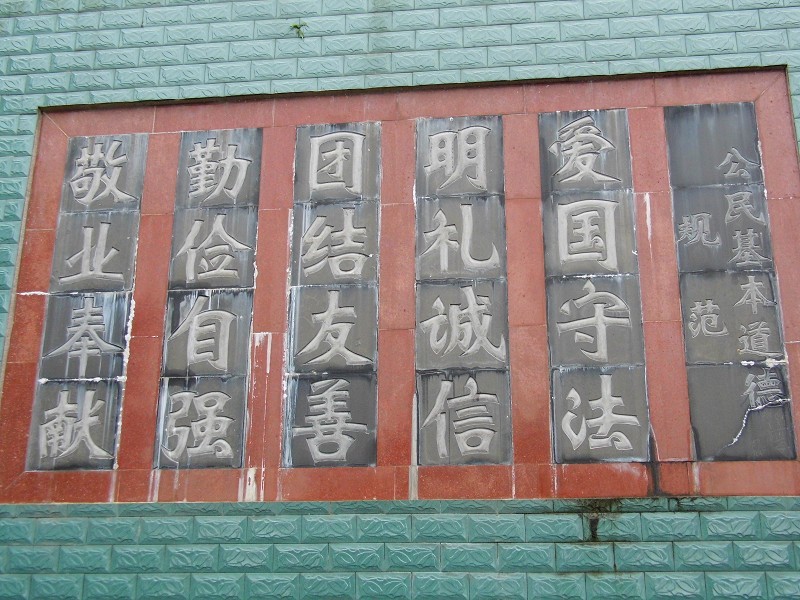 公民基本道德
规范
爱国守法
明礼诚信
团结友善
勤俭自强
敬业奉献